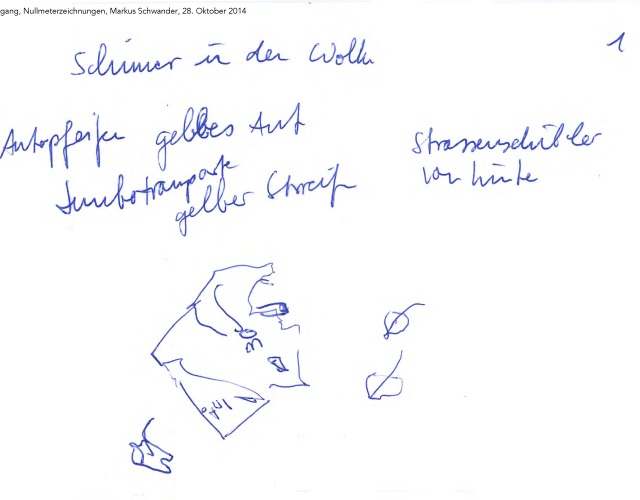 gang, Nullmeterzeichnungen, Markus Schwander, 28. Oktober 2014
1
Schimer in der Wolke
Autopfeifen gelbes Aut
Jumbotransporte
gelber Streif
Strassenschüttler
von hinte
30
Info